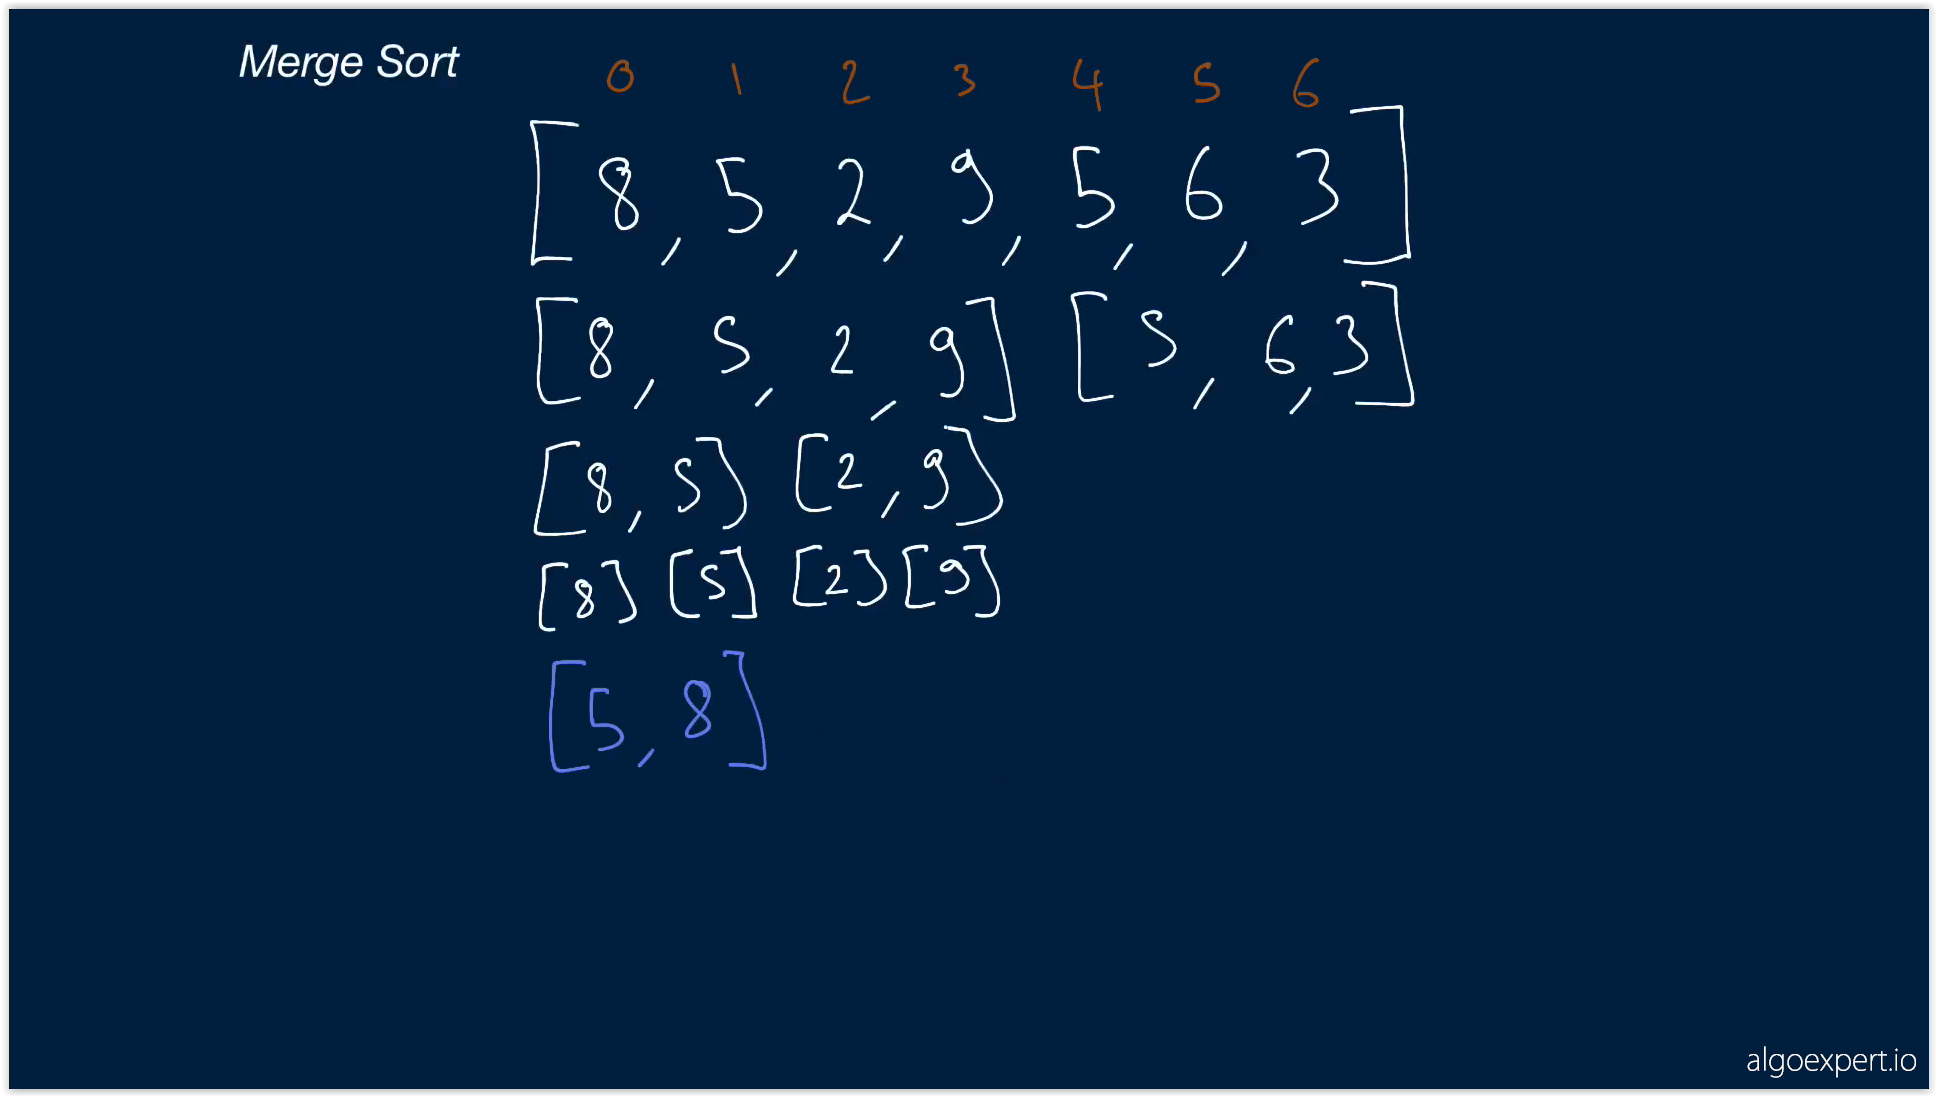 Merge Sort
0 1 2 3 4 5 6
[8, 5, 2, 9, 5, 6, 3]
[8, 5, 2, 9] [5, 6, 3]
[8, 5] [2, 9]
[8] [5] [2] [9]
[5, 8]
algoexpert.io